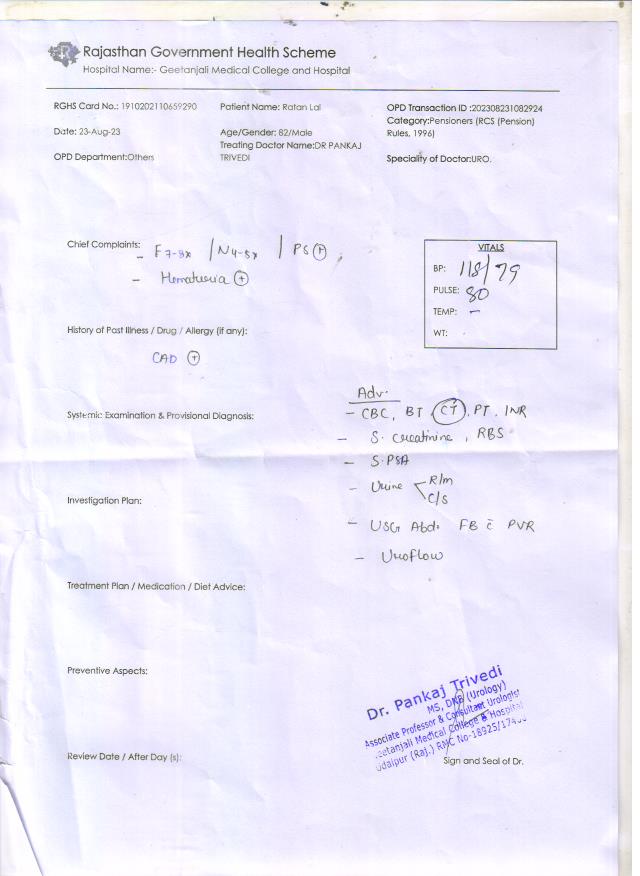 Rajasthan Government Health Scheme
Hospital Name:- Geetanjali Medical College and Hospital
RGHS Card No.: 1910202110659290
Patient Name: Ratan Lal
OPD Transaction ID :202308231082924
Category:Pensioners (RCS (Pension)
Rules, 1996)
Date: 23-Aug-23
Age/Gender: 82/Male
Treating Doctor Name:DR PANKAJ
TRIVEDI
OPD Department:Others
Speciality of Doctor:URO.
Chief Complaints:
- F 7-8x / N 4-5x / PS (+)
- Hematuria (+)
VITALS
BP: 118/79
PULSE: 80
TEMP: -
WT:
History of Past Illness / Drug / Allergy (if any):
CAD (+)
Systemic Examination & Provisional Diagnosis:
Adv.
- CBC, BT, CT, PT. INR
- S. creatinine, RBS
- S. PSA
- Urine < R/m
C/s
- USG Abd. FB c̄ PVR
- Uroflow
Investigation Plan:
Treatment Plan / Medication / Diet Advice:
Preventive Aspects:
Review Date / After Day (s):
Dr. Pankaj Trivedi
MS, DNB (Urology)
Associate Professor & Consultant Urologist
Geetanjali Medical College & Hospital
Udaipur (Raj.) RMC No-18925/
Sign and Seal of Dr.